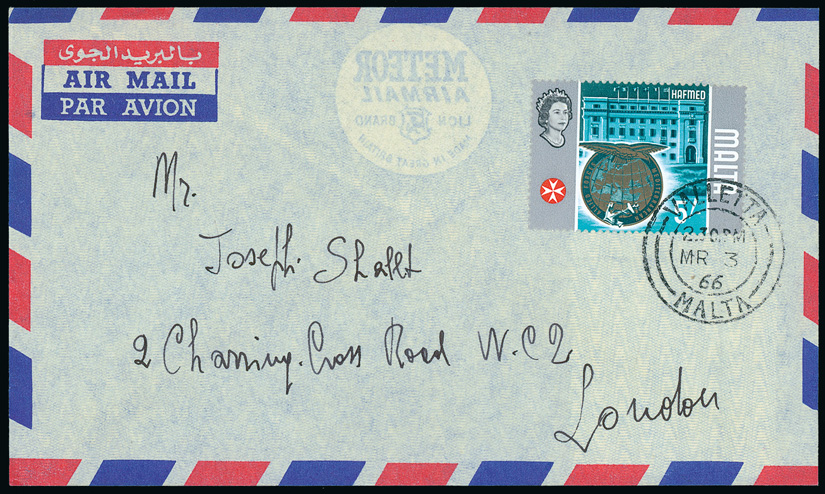 بالبريد الجوى
AIR MAIL
PAR AVION
METEOR
AIRMAIL
LION BRAND
MADE IN GREAT BRITAIN
HAFMED
MALTA
VALLETTA
2.30 PM
MR 3
66
MALTA
Mr.
Joseph Shallt
2 Charring-Cross Road W.C2
London